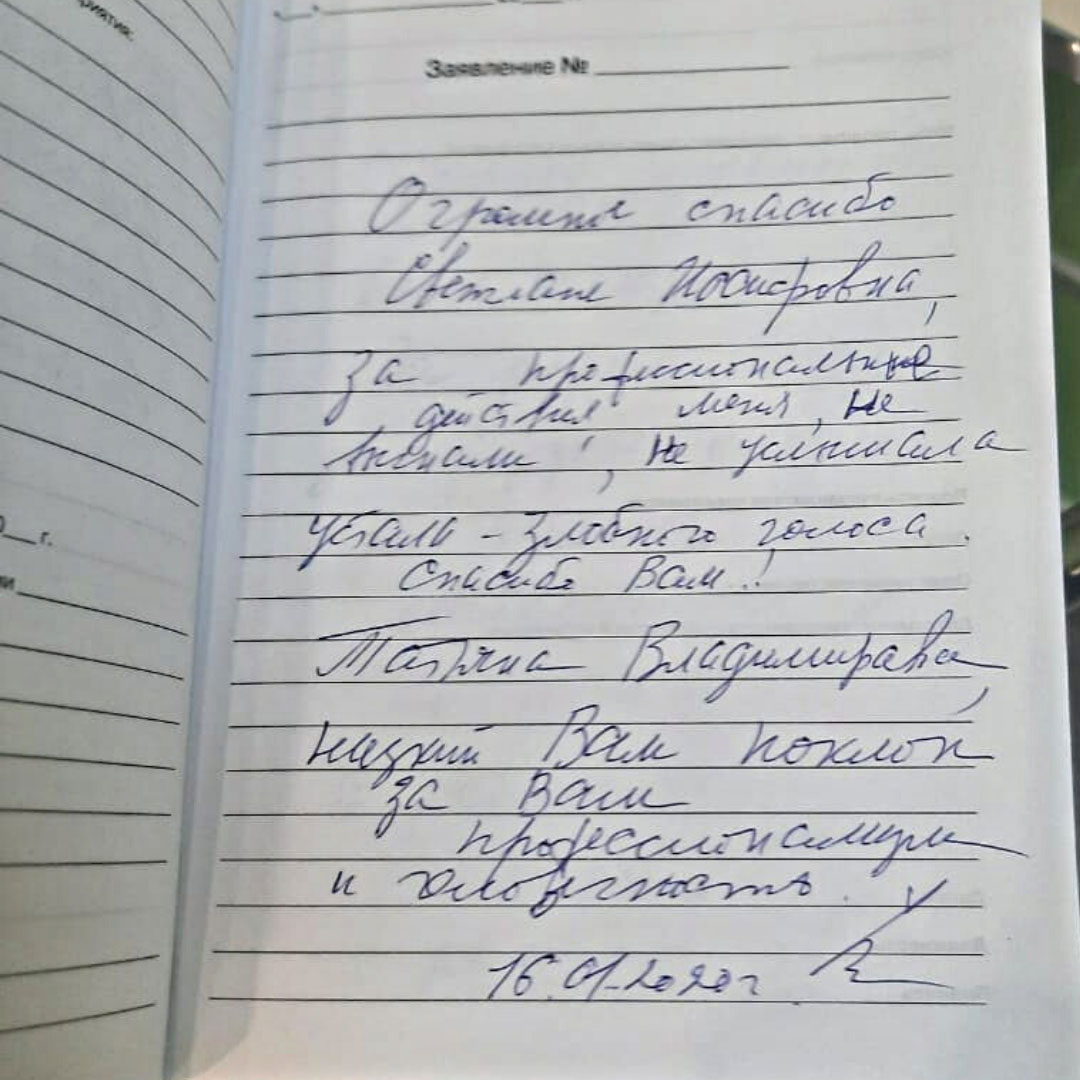 риятия:
Заявление № ___________
Огромне спасибо
Светлане Иосифовна,
За профессиональные
действия меня, не
, не услышала
устало - злобного голоса.
Спасибо Вам!
Татьяна Владимирова,
низкий Вам поклон
за Вам
профессионализм
и человечность.
16.01.2020г
0__ г.
ии